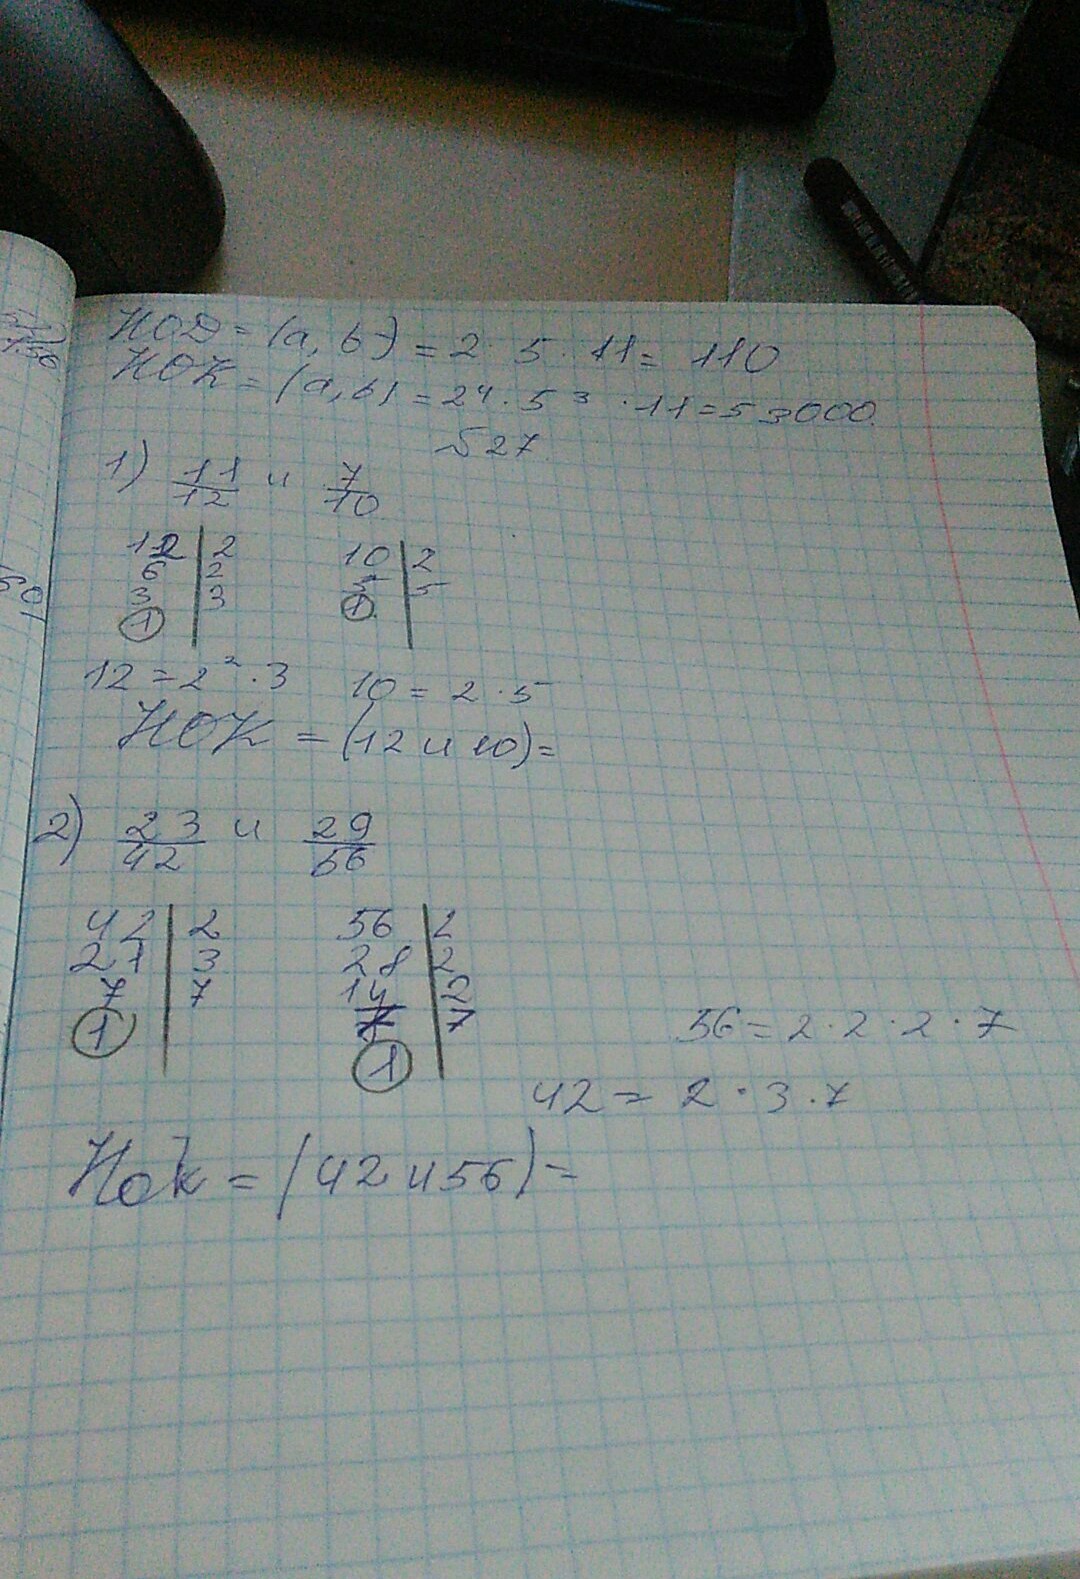 НОД = (a, b) = 2 · 5 · 11 = 110
НОК = (a, b) = 2⁴ · 5³ · 11 = 53000.
№27.
1) 11/12 и 7/10
12 | 2 10 | 2
6 | 2 5 | 5
3 | 3 1
1
12 = 2² · 3 10 = 2 · 5
НОК = (12 и 10) =
2) 23/42 и 29/56
42 | 2 56 | 2
21 | 3 28 | 2
7 | 7 14 | 2
1 7 | 7
1
56 = 2 · 2 · 2 · 7
42 = 2 · 3 · 7
Нок = (42 и 56) =